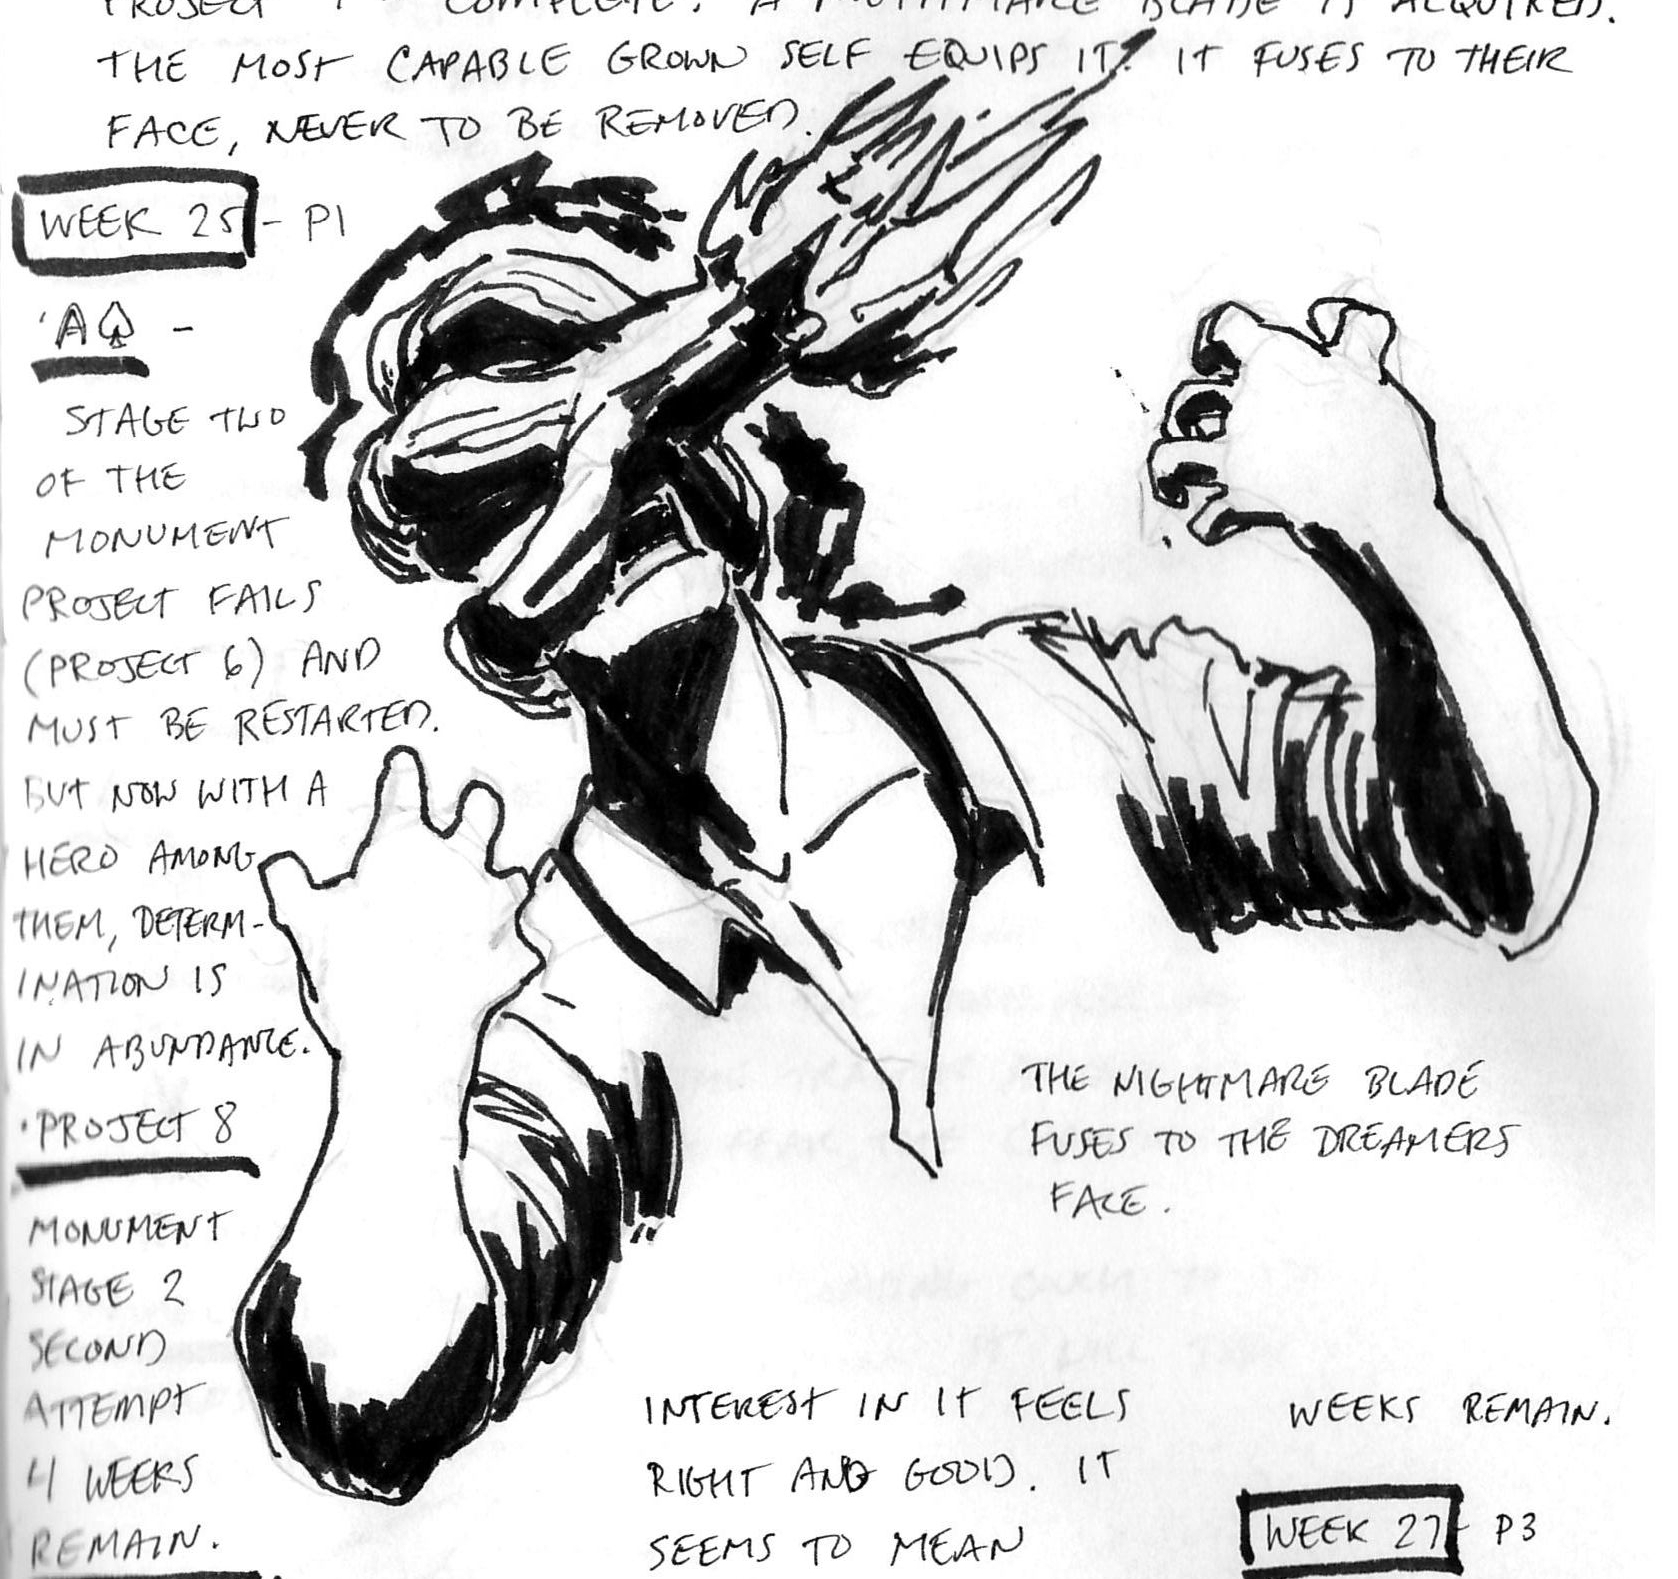 COMPLETE. A NIGHTMARE BLADE IS ACQUIRED.
THE MOST CAPABLE GROWN SELF EQUIPS IT. IT FUSES TO THEIR
FACE, NEVER TO BE REMOVED.
WEEK 25 - P1
'A♤ -
STAGE TWO
OF THE
MONUMENT
PROJECT FAILS
(PROJECT 6) AND
MUST BE RESTARTED.
BUT NOW WITH A
HERO AMONG
THEM, DETERM-
INATION IS
IN ABUNDANCE.
·PROJECT 8
MONUMENT
STAGE 2
SECOND
ATTEMPT
4 WEEKS
REMAIN.
THE NIGHTMARE BLADE
FUSES TO THE DREAMERS
FACE.
INTEREST IN IT FEELS
RIGHT AND GOOD. IT
SEEMS TO MEAN
WEEKS REMAIN.
WEEK 27 - P3